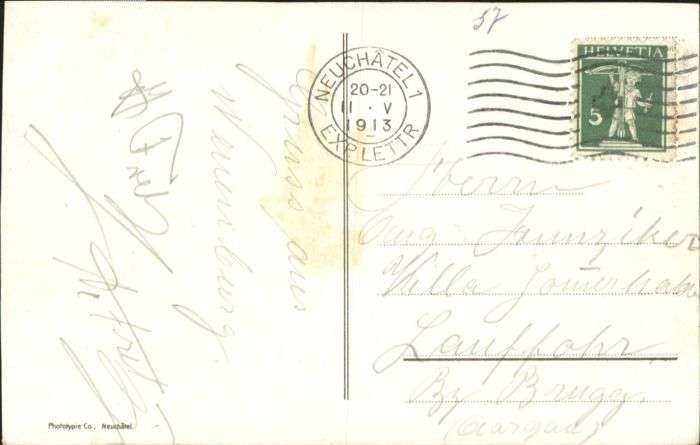 57
NEUCHÂTEL 1
20-21
11 · V
1913
EXP. LETTR
HELVETIA
5
Gruss aus
Neuenburg.
Herrn
Aug. Hunziker
Villa
Lauffohr
By Brugg.
(Aargau)
Phototypie Co., Neuchâtel.